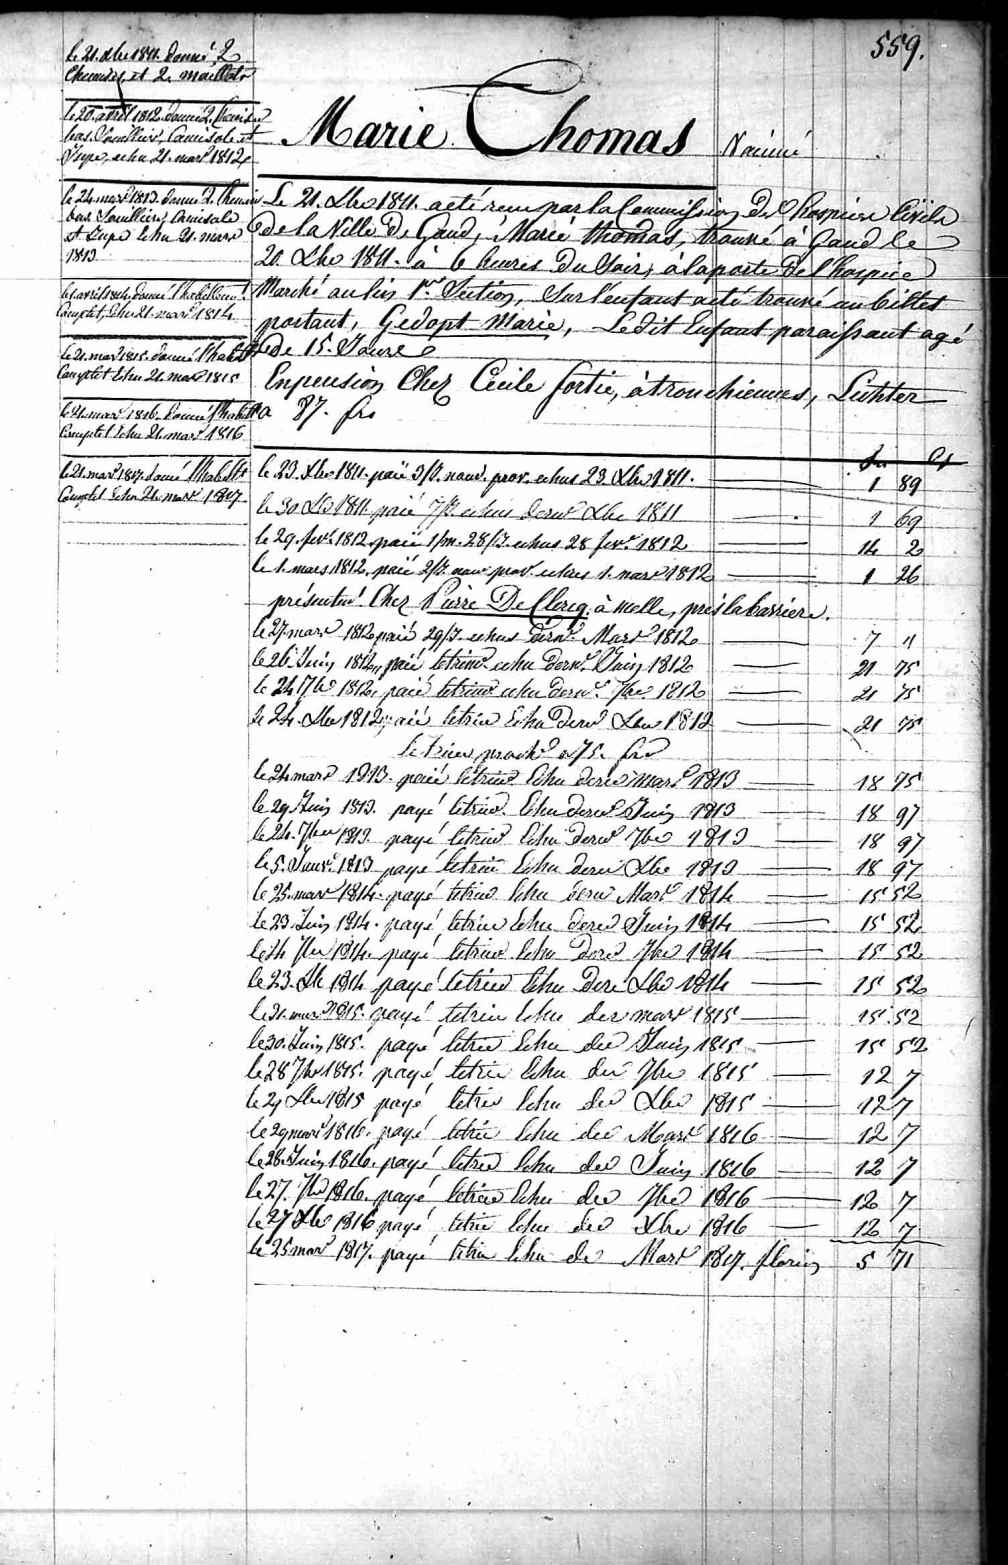 559.
le 21. Xbre 1811. donné, 2
Chemises, et 2. maillots
le 20. avril 1812. donné 2. Chemises
bas. Souliers, Camisole et
Jupe, echu 21. mars 1812
le 24. mars 1813. donné 2. Chemises
bas Souliers, Camisole
et Jupe Echu 21. mars
1813
le 1. avril 1814. donné l'habillemt.
Complet, Echu 21. mars 1814
le 21. mars 1815. donné l'habillt
Complet Echu 21. mars 1815
le 21. mars 1816. donné l'habillt
Complet Echu 21. mars 1816
le 21. mars 1817. donné l'habillt
Complet Echu 21. mars 1817
Marie Thomas Vacciné
Le 21. Xbre 1811. a eté recu par la Commission des hospices Civils
de la Ville De Gand, Marie Thomas, trouvé à Gand le
20. Xbre 1811. à 6 heures du Soir, à la porte de l'hospice
Marché au lin 1re Section, Sur l'enfant a eté trouvé un billet
portant, Gedopt Marie, Ledit Enfant paraissant agé
de 15. Jours
En pension Chez Cecile fortie, à tronchiennes, Lichter
a 87. frs
frs Cs
le 23. Xbre 1811. paié 3/J. nouv. prov. echus 23 Xbre 1811. 1 89
le 30. Xbre 1811 paié 7/J. echus dernr Xbre 1811 1 69
le 29. fevr. 1812 paié 1/m. 28/J. echus 28 fevr. 1812 14 2
le 1. mars 1812. paié 2/J. nouv prov. echus 1. mars 1812 1 26
présentemt. Chez Pierre De Clercq à melle, près la barriere.
le 27. mars 1812 paié 29/J. echus dernr. Mars 1812 7 "
le 26 Juin 1812, paié le trimr echu dernr. Juin 1812 21 75
le 24 7bre 1812, paié le trimr echu dernr. 7bre 1812 21 75
le 24. Xbre 1812, paié le trim Echu dernr Xbre 1812 21 75
le trim proch. a 75. frs
le 24 mars 1813. paié le trim Echu dernr mars 1813 18 75
le 29 Juin 1813. payé le trim. Echu dernr Juin 1813 18 97
le 24. 7bre 1813. payé le trim Echu dernr 7bre 1813 18 97
le 5. Janvr. 1813 payé le trim Echu dernr Xbre 1813 18 97
le 25. mars 1814. payé le trim Echu dernr Mars 1814 15 52
le 23. Juin 1814. payé le trim Echu dernr Juin 1814 15 52
le 24 7bre 1814. payé le trim Echu dernr 7bre 1814 15 52
le 23. Xbre 1814 payé le trim Echu dernr Xbre 1814 15 52
le 21. mars 1815. payé le trim Echu der mars 1815 15 52
le 30. Juin 1815. payé le trim Echu der Juin 1815 15 52
le 28 7bre 1815. payé le trim Echu der 7bre 1815 12 7
le 29 Xbre 1815 payé le trim Echu der Xbre 1815 12 7
le 29 mars 1816. payé le trim Echu der Mars 1816 12 7
le 28. Juin 1816. payé le trim Echu der Juin 1816 12 7
le 27. 7bre 1816. payé le trim Echu der 7bre 1816 12 7
le 27 Xbre 1816 payé le trim Echu der Xbre 1816 12 7
le 25 mars 1817. payé le trim Echu de Mars 1817. florins 5 71